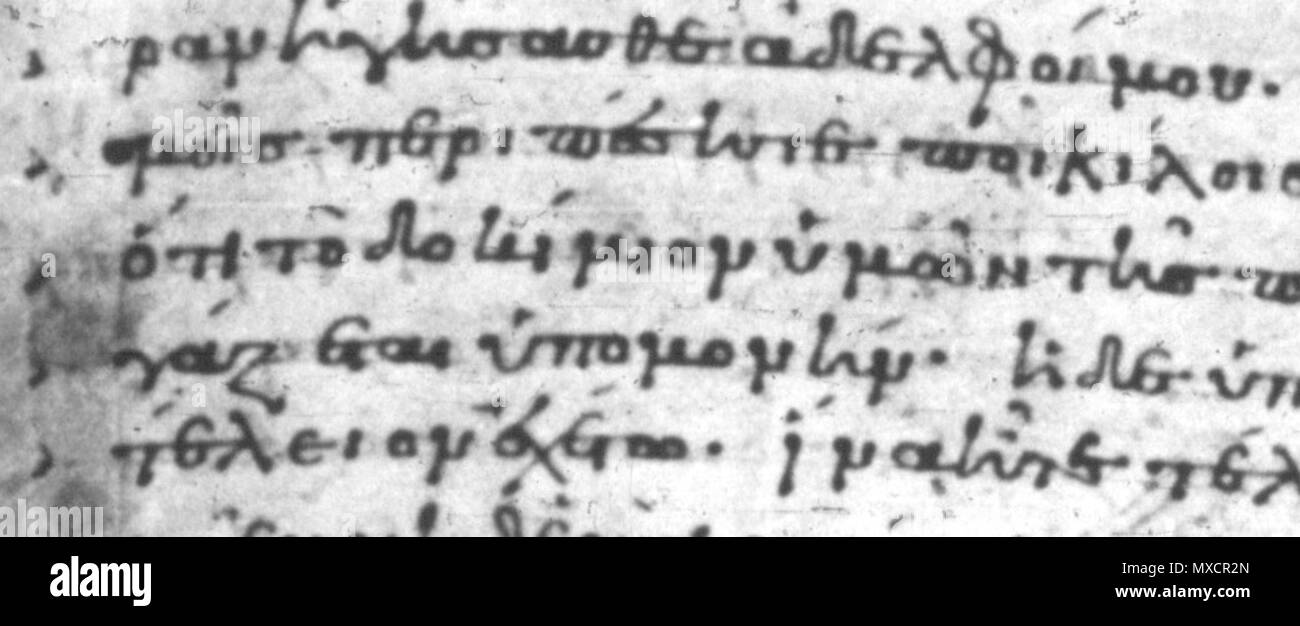 ραν ἡγήσασθε ἀδελφοί μου·
μοῖς περιπέσητε ποικίλοις
ὅτι τὸ δοκίμιον ὑμῶν τῆς π
γάζεται ὑπομονήν· ἡ δὲ ὑπ
τέλειον ἐχέτω· ἵνα ἦτε τέλ
alamy
Image ID: MXCR2N
www.alamy.com